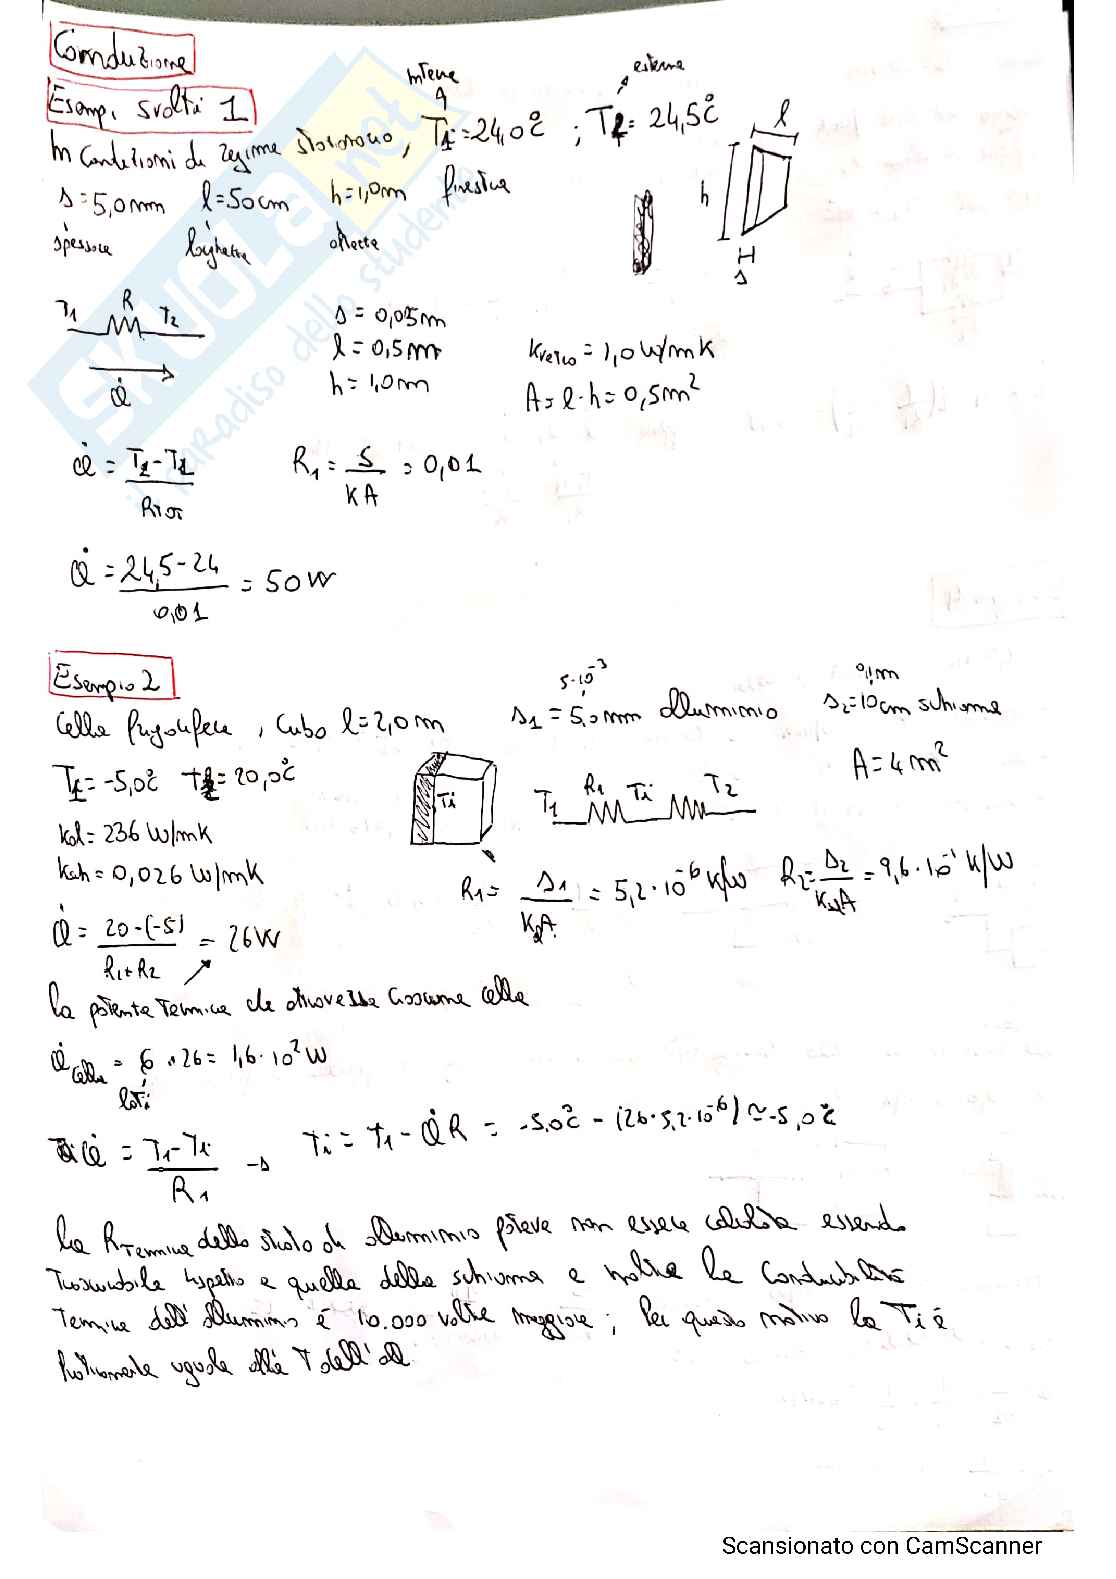 Conduzione
Esempi svolti 1
interna
esterna
In condizioni di regime stazionario, T1=24,0°C ; T2=24,5°C
s=5,0mm l=50cm h=1,0m finestra
spessore lunghezza altezza
l
h
s
T1 R T2
Q̇
s=0,05m
l=0,5m
h=1,0m
Kvetro=1,0W/mK
A=l·h=0,5m²
Q̇ = T2-T1 / RTOT
R1 = S / KA = 0,01
Q̇ = 24,5-24 / 0,01 = 50W
Esempio 2
Cella frigorifera, Cubo l=2,0m
5·10⁻³
s1=5,0mm alluminio
0,1m
s2=10cm schiuma
A=4m²
T1=-5,0°C T2=20,0°C
Kal=236 W/mK
Ksch=0,026 W/mK
Ti
T1 R1 Ti T2
R1 = s1 / KA = 5,2·10⁻⁶ K/W
R2 = s2 / KA = 9,6·10⁻¹ K/W
Q̇ = 20-(-5) / R1+R2 = 26W
la potenza termica che attraversa ciascuna cella
Q̇cella = 6·26 = 1,6·10² W
lati
Q̇ = T1-Ti / R1 → Ti = T1-Q̇R = -5,0°C - (26·5,2·10⁻⁶) ≃ -5,0°C
la RTermica dello strato di alluminio poteva non essere calcolata essendo
trascurabile rispetto a quella della schiuma e inoltre la Conducibilità
Termica dell'alluminio è 10.000 volte maggiore; Per questo motivo la Ti è
praticamente uguale alla T dell'all.
SKUOLA.net
il paradiso dello studente
Scansionato con CamScanner